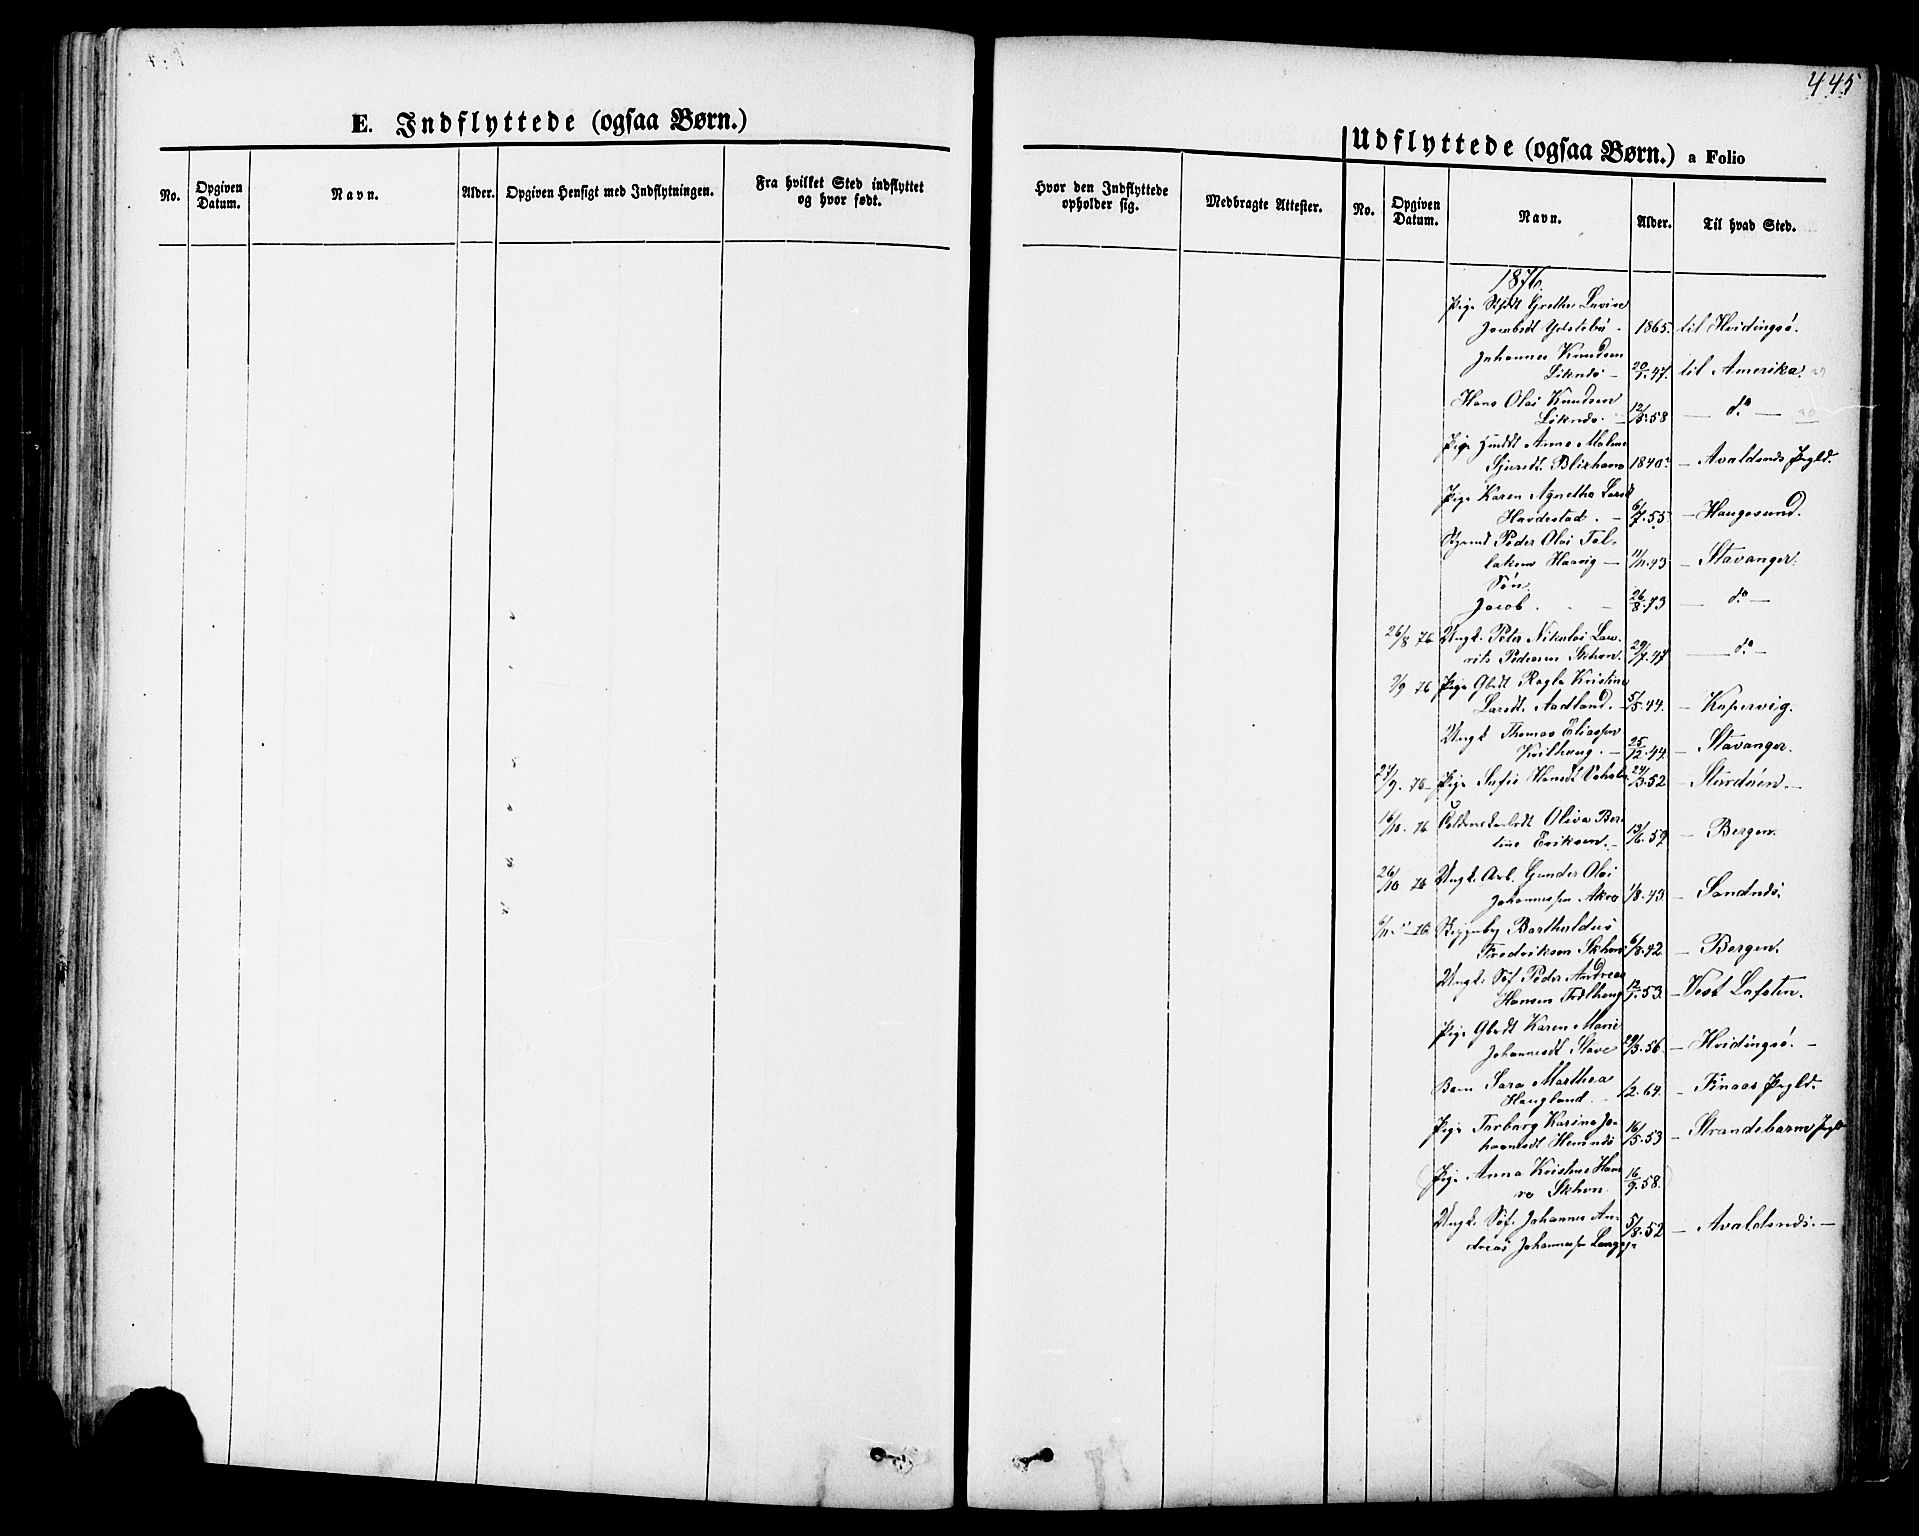 445
E. Indflyttede (ogsaa Børn.)
No.
Opgiven Datum.
Navn.
Alder.
Opgiven Hensigt med Indflytningen.
Fra hvilket Sted indflyttet og hvor født.
Hvor den Indflyttede opholder sig.
Medbragte Attester.
Udflyttede (ogsaa Børn.) a Folio
No.
Opgiven Datum.
Navn.
Alder.
Til hvad Sted.
1876.
Pige Grethe Lovise
1865. til Hvidingsö.
Johannes Knudsen
Liknes - 20/1.47. til Amerika.
Hans Olai Knudsen
Liknes - 12/5.58 - do -
Pige Anna Malene
Sjursdt. Blixhavn 1840. - Avaldsnes Pgld.
Pige Karen Agnetha Larsd
6/7.55 - Haugesund.
Peder Olai Tol-
laksen Haavig - 11/11.43 - Stavanger.
Søn
Jacob - 26/8.73 - do -
26/8 76 Ungk. Peter Nikolai Lau-
rits Pedersen 29/7.47 - do -
9/9 76 Pige Ragla Kristine
Larsdt. Aadland. 5/5.44. - Kopervig.
Ungk Thomas Eliassen
Kvilhaug. - 25/12.44 - Stavanger.
27/9. 76 - Pige Sofie Hansdt 24/3.52 - Stordöen. -
16/10. 76 Oliva Ber-
tine Eriksen. - 13/6.59 - Bergen.
26/10 76 Ungk. Arb. Gunder Olai
Johannessen Akre 1/8.43. - Sandnes.
6/11 - 76 Bartholdus
Fredriksen 6/8.42 - Bergen.
Ungk. Söf. Peder Andreas
Hansen 12/1.53. - Vest Lofoten.
Pige Karen Marie
Johannesdt Stave 29/3.56. - Hvidingsö. -
Barn Sara Marthea
Haugland. - 1/2.64. - Finaas Pgld.
Pige Torborg Karine Jo-
hannesdt 16/5.53 - Strandebarm Pgld
Pige Anna Kristine
16/9.58.
Ungk. Söf. Johannes An-
dreas Johannessen 5/8.52 - Avaldsnes. -